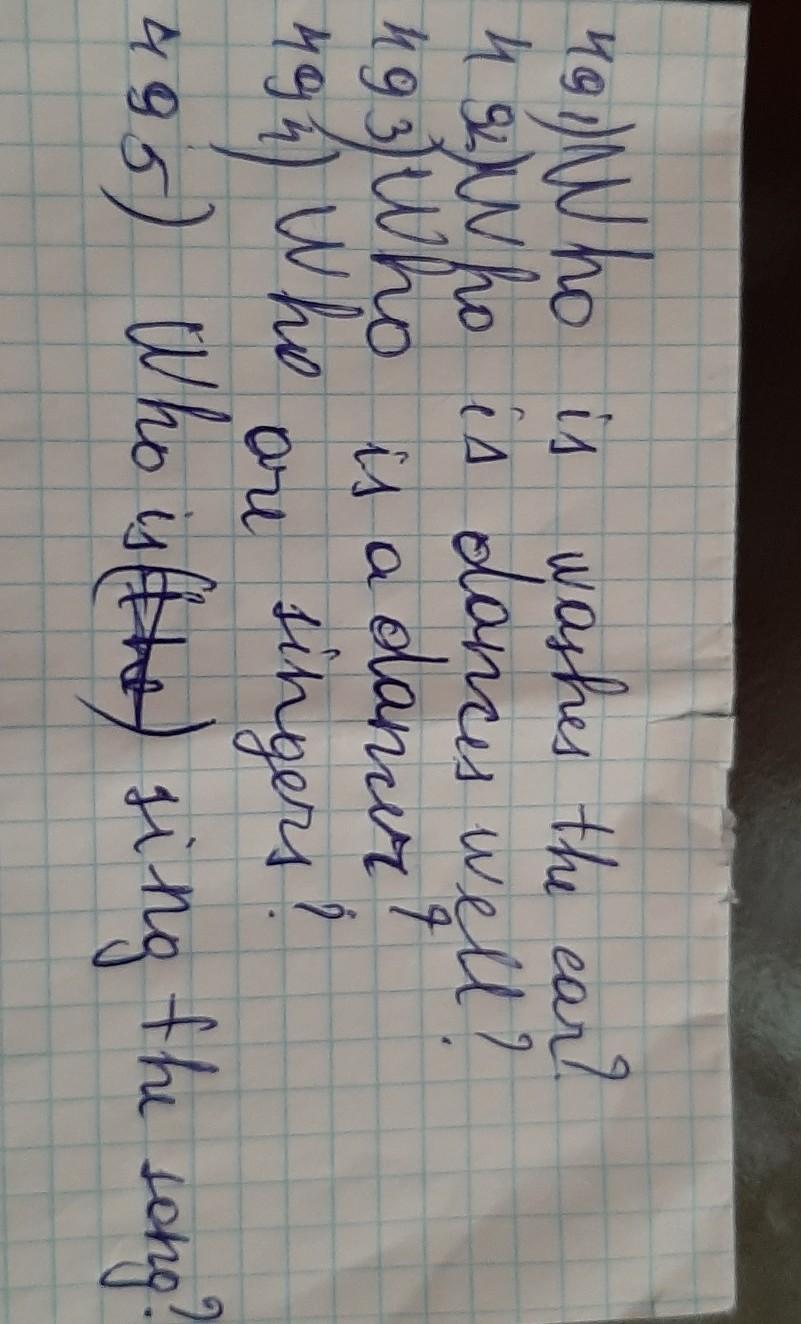 491) Who is washes the car?
492) Who is dances well?
493) Who is a dancer?
494) Who are singers?
495) Who is (the) sing the song?